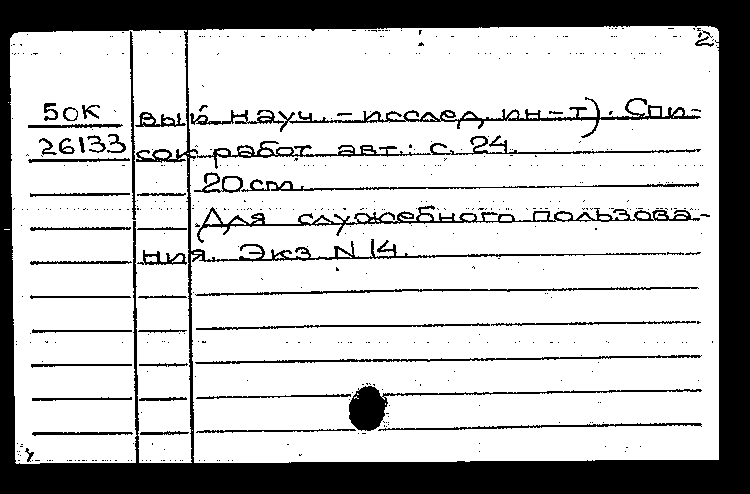 2
50К вый науч. - исслед. ин-т). Спи-
26133 сок работ авт.: с. 24.
20 см.
Для служебного пользова-
ния. Экз N 14.